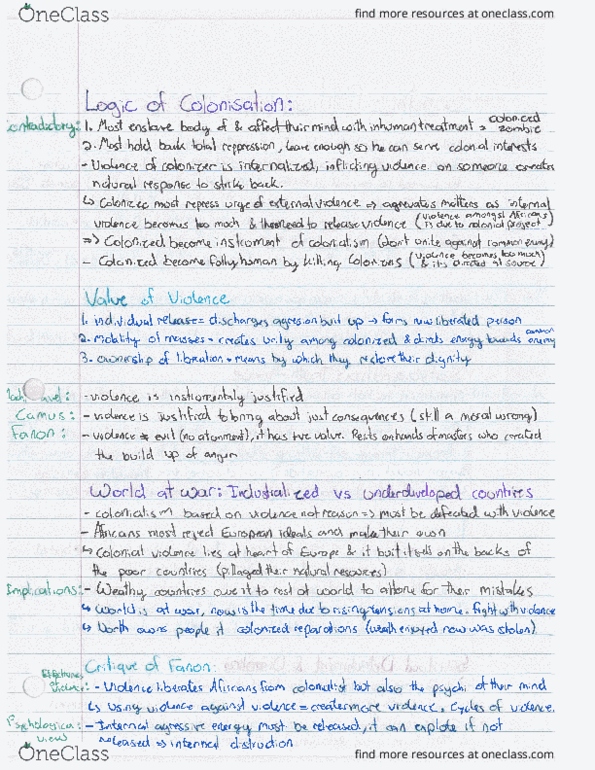 OneClass
find more resources at oneclass.com
Logic of Colonisation:
Contradictory: 1. Most enslave body of & affect their mind with inhuman treatment => colonized zombie
2. Most hold back total repression, leave enough so he can serve colonial interests
- Violence of colonizer is internalized, inflicting violence on someone creates
natural response to strike back.
↳ Colonized most repress urge of external violence => aggrevates matters as internal
violence becomes too much & need to release violence (violence amongst Africans is due to colonial project)
=> Colonized become instrument of colonialism (don't unite against common enemy)
- Colonized become fully human by killing Colonizers (violence becomes too much & its directed at source)
Value of Violence
1. individual release = discharges aggression built up → forms new liberated person
2. mobility of masses - creates unity among colonized & directs energy towards common enemy
3. ownership of liberation - means by which they restore their dignity
- violence is instrumentally justified
Camus: - violence is justified to bring about just consequences (still a moral wrong)
Fanon: - violence ≠ evil (no atonment), it has true value. Rests on hands of masters who created
the build up of anger
World at war: Industrialized vs underdeveloped countires
- colonialism based on violence not reason => must be defeated with violence
- Africans most reject European ideals and make their own
↳ Colonial violence lies at heart of Europe & it built itself on the backs of
the poor countries (pillaged their natural resources)
Implications: - Weathy countries owe it to rest of world to attone for their mistakes
↳ World is at war, now is the time due to rising tensions at home. fight with violence
↳ North owns people it colonized reparations (wealth enjoyed now was stolen)
Critique of Fanon:
Effectivness of violence: - Violence liberates Africans from colonialist but also the psychi of their mind
↳ Using violence against violence = creater more violence. Cycles of violence.
Psychological view: - Internal aggresive energy must be released, it can explote if not
released => internal distruction
OneClass
find more resources at oneclass.com